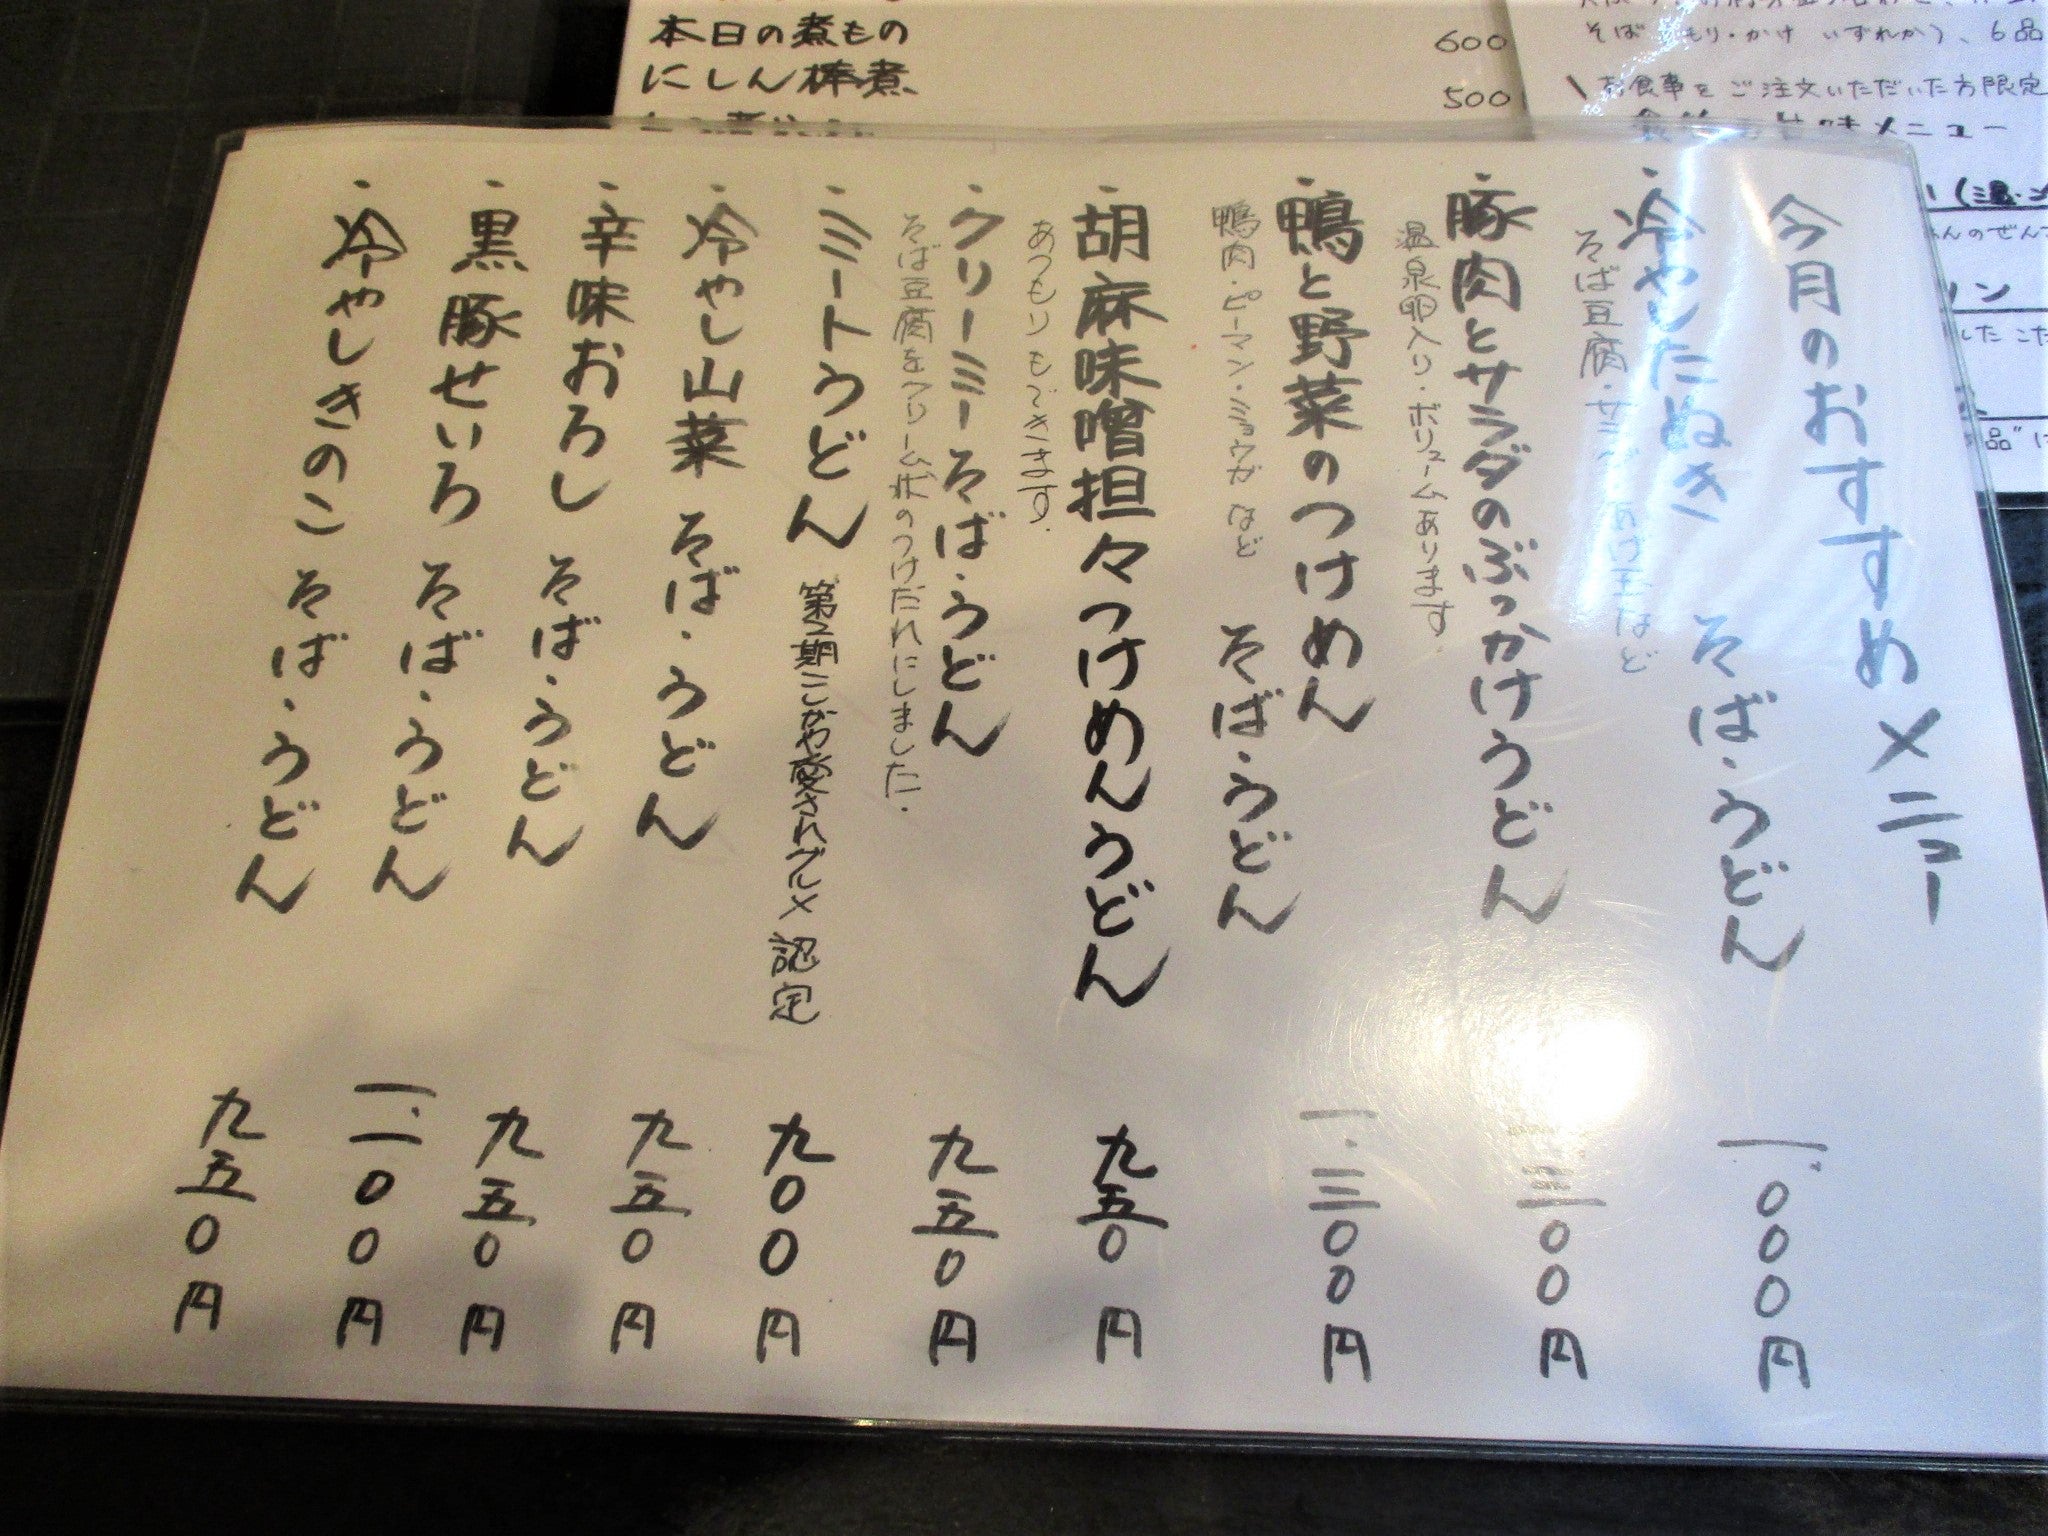 本日の煮もの 600
にしん棒煮 500
そば(もり・かけ いずれか)、6品
お食事をご注文いただいた方限定
メニュー
今月のおすすめメニュー
・冷やしたぬき そば・うどん 一、000円
そば豆腐・サラダ・あげ玉など
・豚肉とサラダのぶっかけうどん 一、三00円
温泉卵入り・ボリュームあります。
・鴨と野菜のつけめん そば・うどん 一、三00円
鴨肉・ピーマン・ミョウガなど
・胡麻味噌担々つけめんうどん 九五0円
あつもりもできます。
・クリーミーそば・うどん 九五0円
そば豆腐をクリーム状のつけだれにしました。
・ミートうどん 第2期こがや愛されグルメ認定 九00円
・冷やし山菜 そば・うどん 九五0円
・辛味おろし そば・うどん 九五0円
・黒豚せいろ そば・うどん 一、一00円
・冷やしきのこ そば・うどん 九五0円